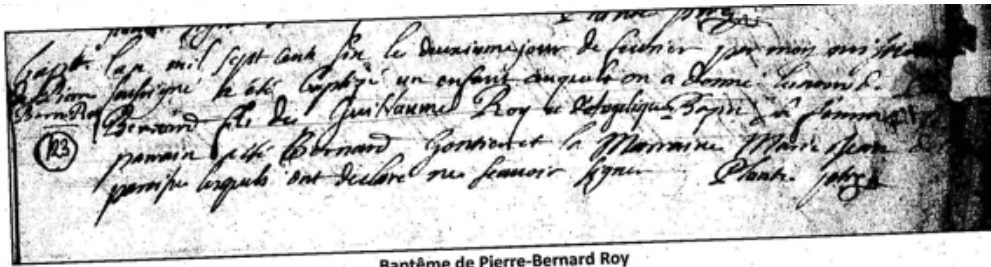 l'an mil sept cent six le deuxieme jour de fevrier par moy
soubsigné a été baptizé un enfant auquel on a donné le nom de
Bernard fils de Guillaume Roy et d'Angelique Bazin sa femme
123
parrain a été Bernard Gontier et la Marraine Marie Jean
paroisse lesquels ont declaré ne scavoir signer Plante ptre
Baptême de Pierre-Bernard Roy